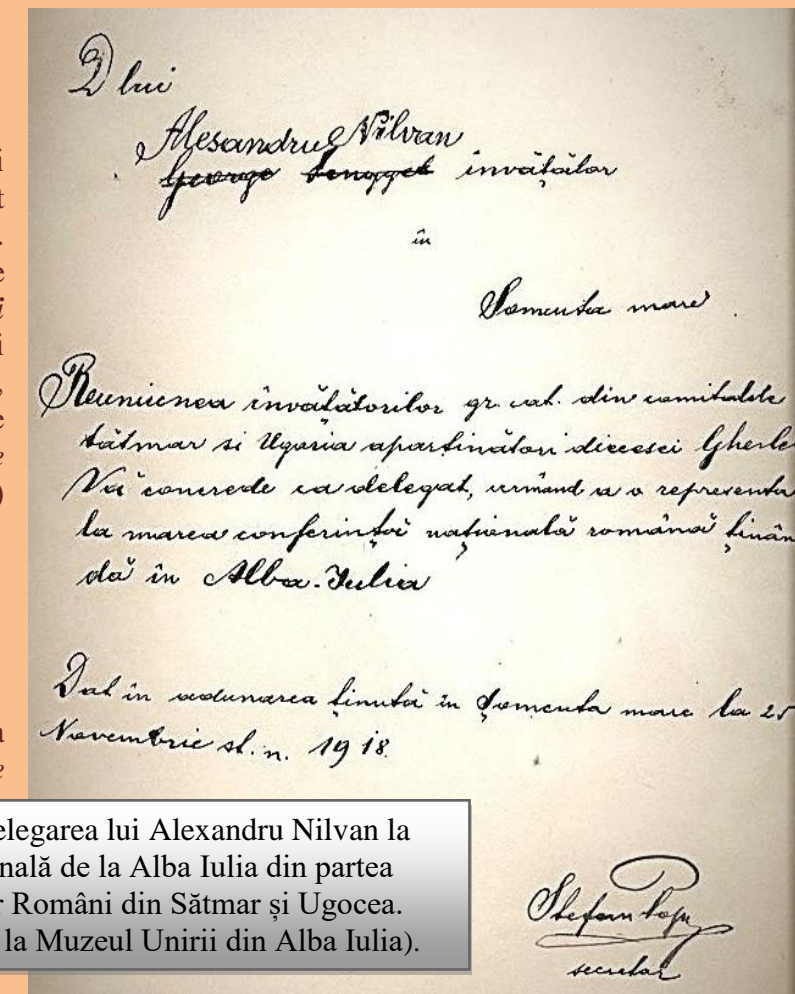 D lui
Alesandru Nilvan
George învățător
în
Somcuta mare
Reuniunea învățătorilor gr. cat. din comitatele
sătmar si Ugocia aparținători diecesei Gherlei
Vă concrede ca delegat, urmând a o representa
la marea conferință națională română ținân
dă în Alba-Iulia
Dat în adunarea ținută în Șomcuta mare la 25
Novembrie st. n. 1918.
Stefan Pop
secretar
elegarea lui Alexandru Nilvan la
nală de la Alba Iulia din partea
r Români din Sătmar și Ugocea.
la Muzeul Unirii din Alba Iulia).